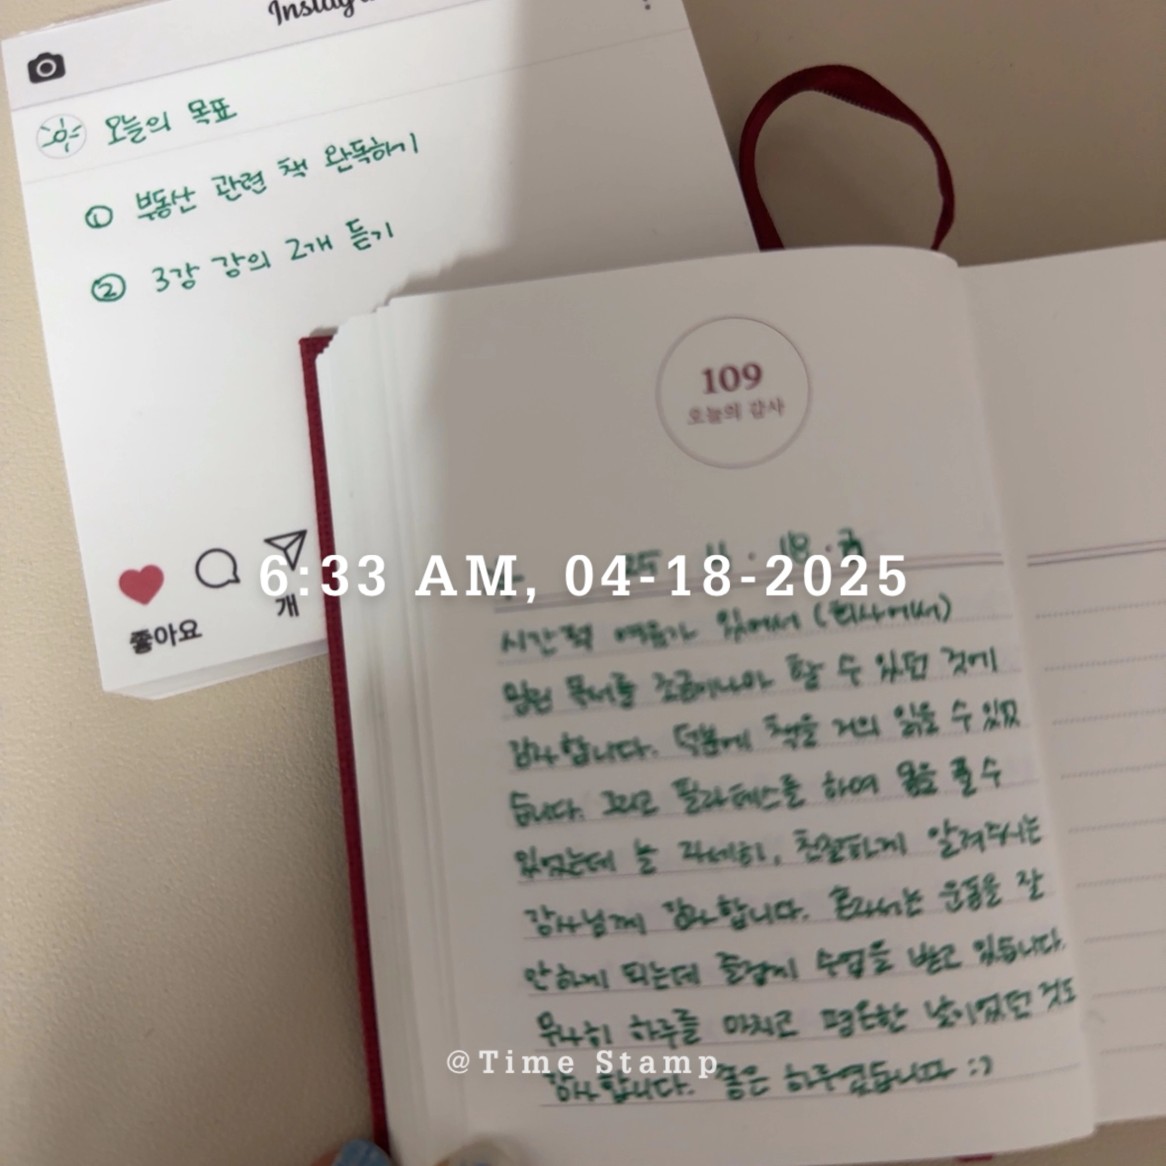 오늘의 목표
① 부동산 관련 책 완독하기
② 3강 강의 2개 듣기
좋아요
개
109
오늘의 감사
6:33 AM, 04-18-2025
시간적 여유가 있어서 (회사에서)
밀린 독서를 조금이나마 할 수 있던 것에
감사합니다. 덕분에 책을 거의 읽을 수 있었
습니다. 그리고 필라테스를 하며 몸을 풀 수
있었는데 늘 자세히, 친절하게 알려주시는
강사님께 감사합니다. 혼자서는 운동을 잘
안하게 되는데 즐겁게 수업을 받고 있습니다.
무사히 하루를 마치고 평온한 날이었던 것도
감사합니다. 좋은 하루였습니다 :)
@Time Stamp